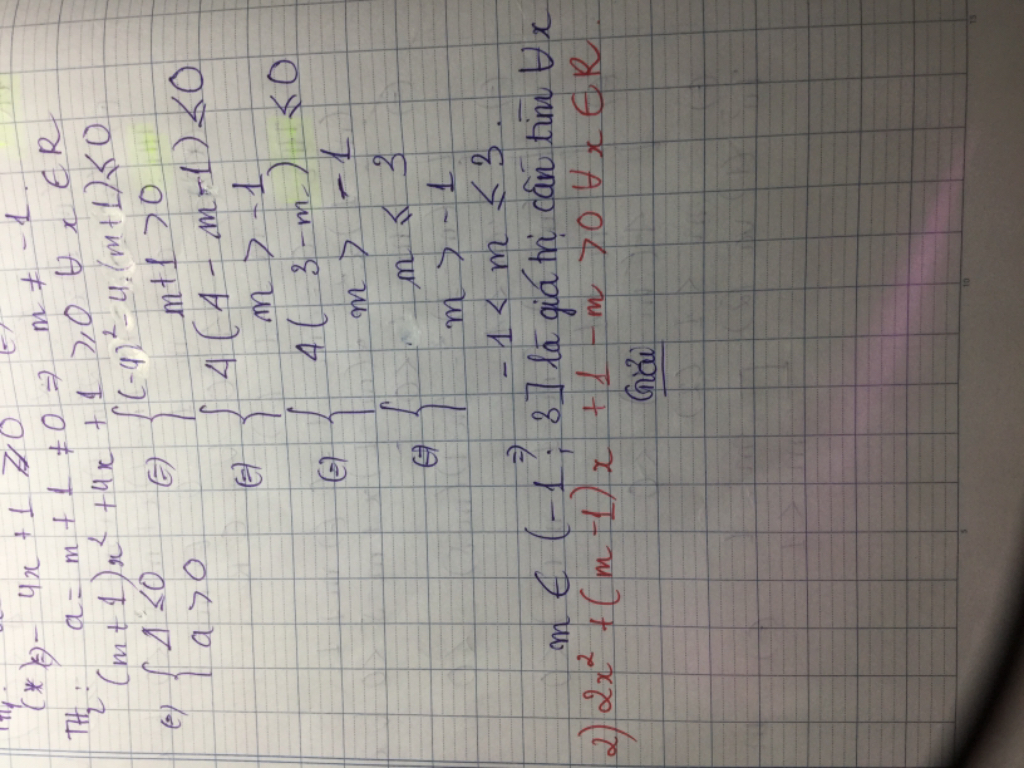 (*) (=) - 4x + 1 ≥ 0
TH2: a = m + 1 ≠ 0 => m ≠ -1
(m+1)x² + 4x + 1 ≥ 0 ∀ x ∈ R
(=) { Δ ≤ 0 (=) { (-4)² - 4.(m+1) ≤ 0
a > 0 m+1 > 0
(=) { 4(4 - m - 1) ≤ 0
m > -1
(=) { 4(3 - m) ≤ 0
m > -1
(=) { m ≤ 3
m > -1
=> -1 < m ≤ 3.
m ∈ (-1; 3] là giá trị cần tìm ∀ x
2) 2x² + (m-1)x + 1 - m > 0 ∀ x ∈ R
Giải